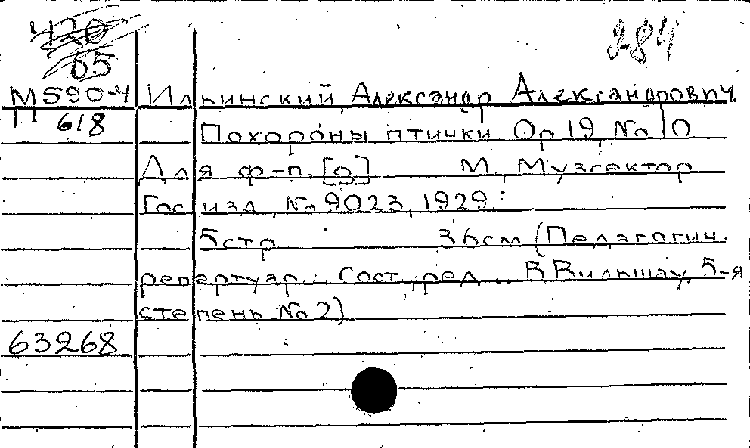 284
65
М590-4 Ильинский, Александр Александрович.
П 618
Похороны птички. Ор 19, No 10
Для ф-п. [о] М., Музсектор
Госиздʼ, No 9023, 1929.
5стр 36см (Педагогич.
репертуар. Сост. ред. В Вильшау, 5-я
степень No 2)
63268